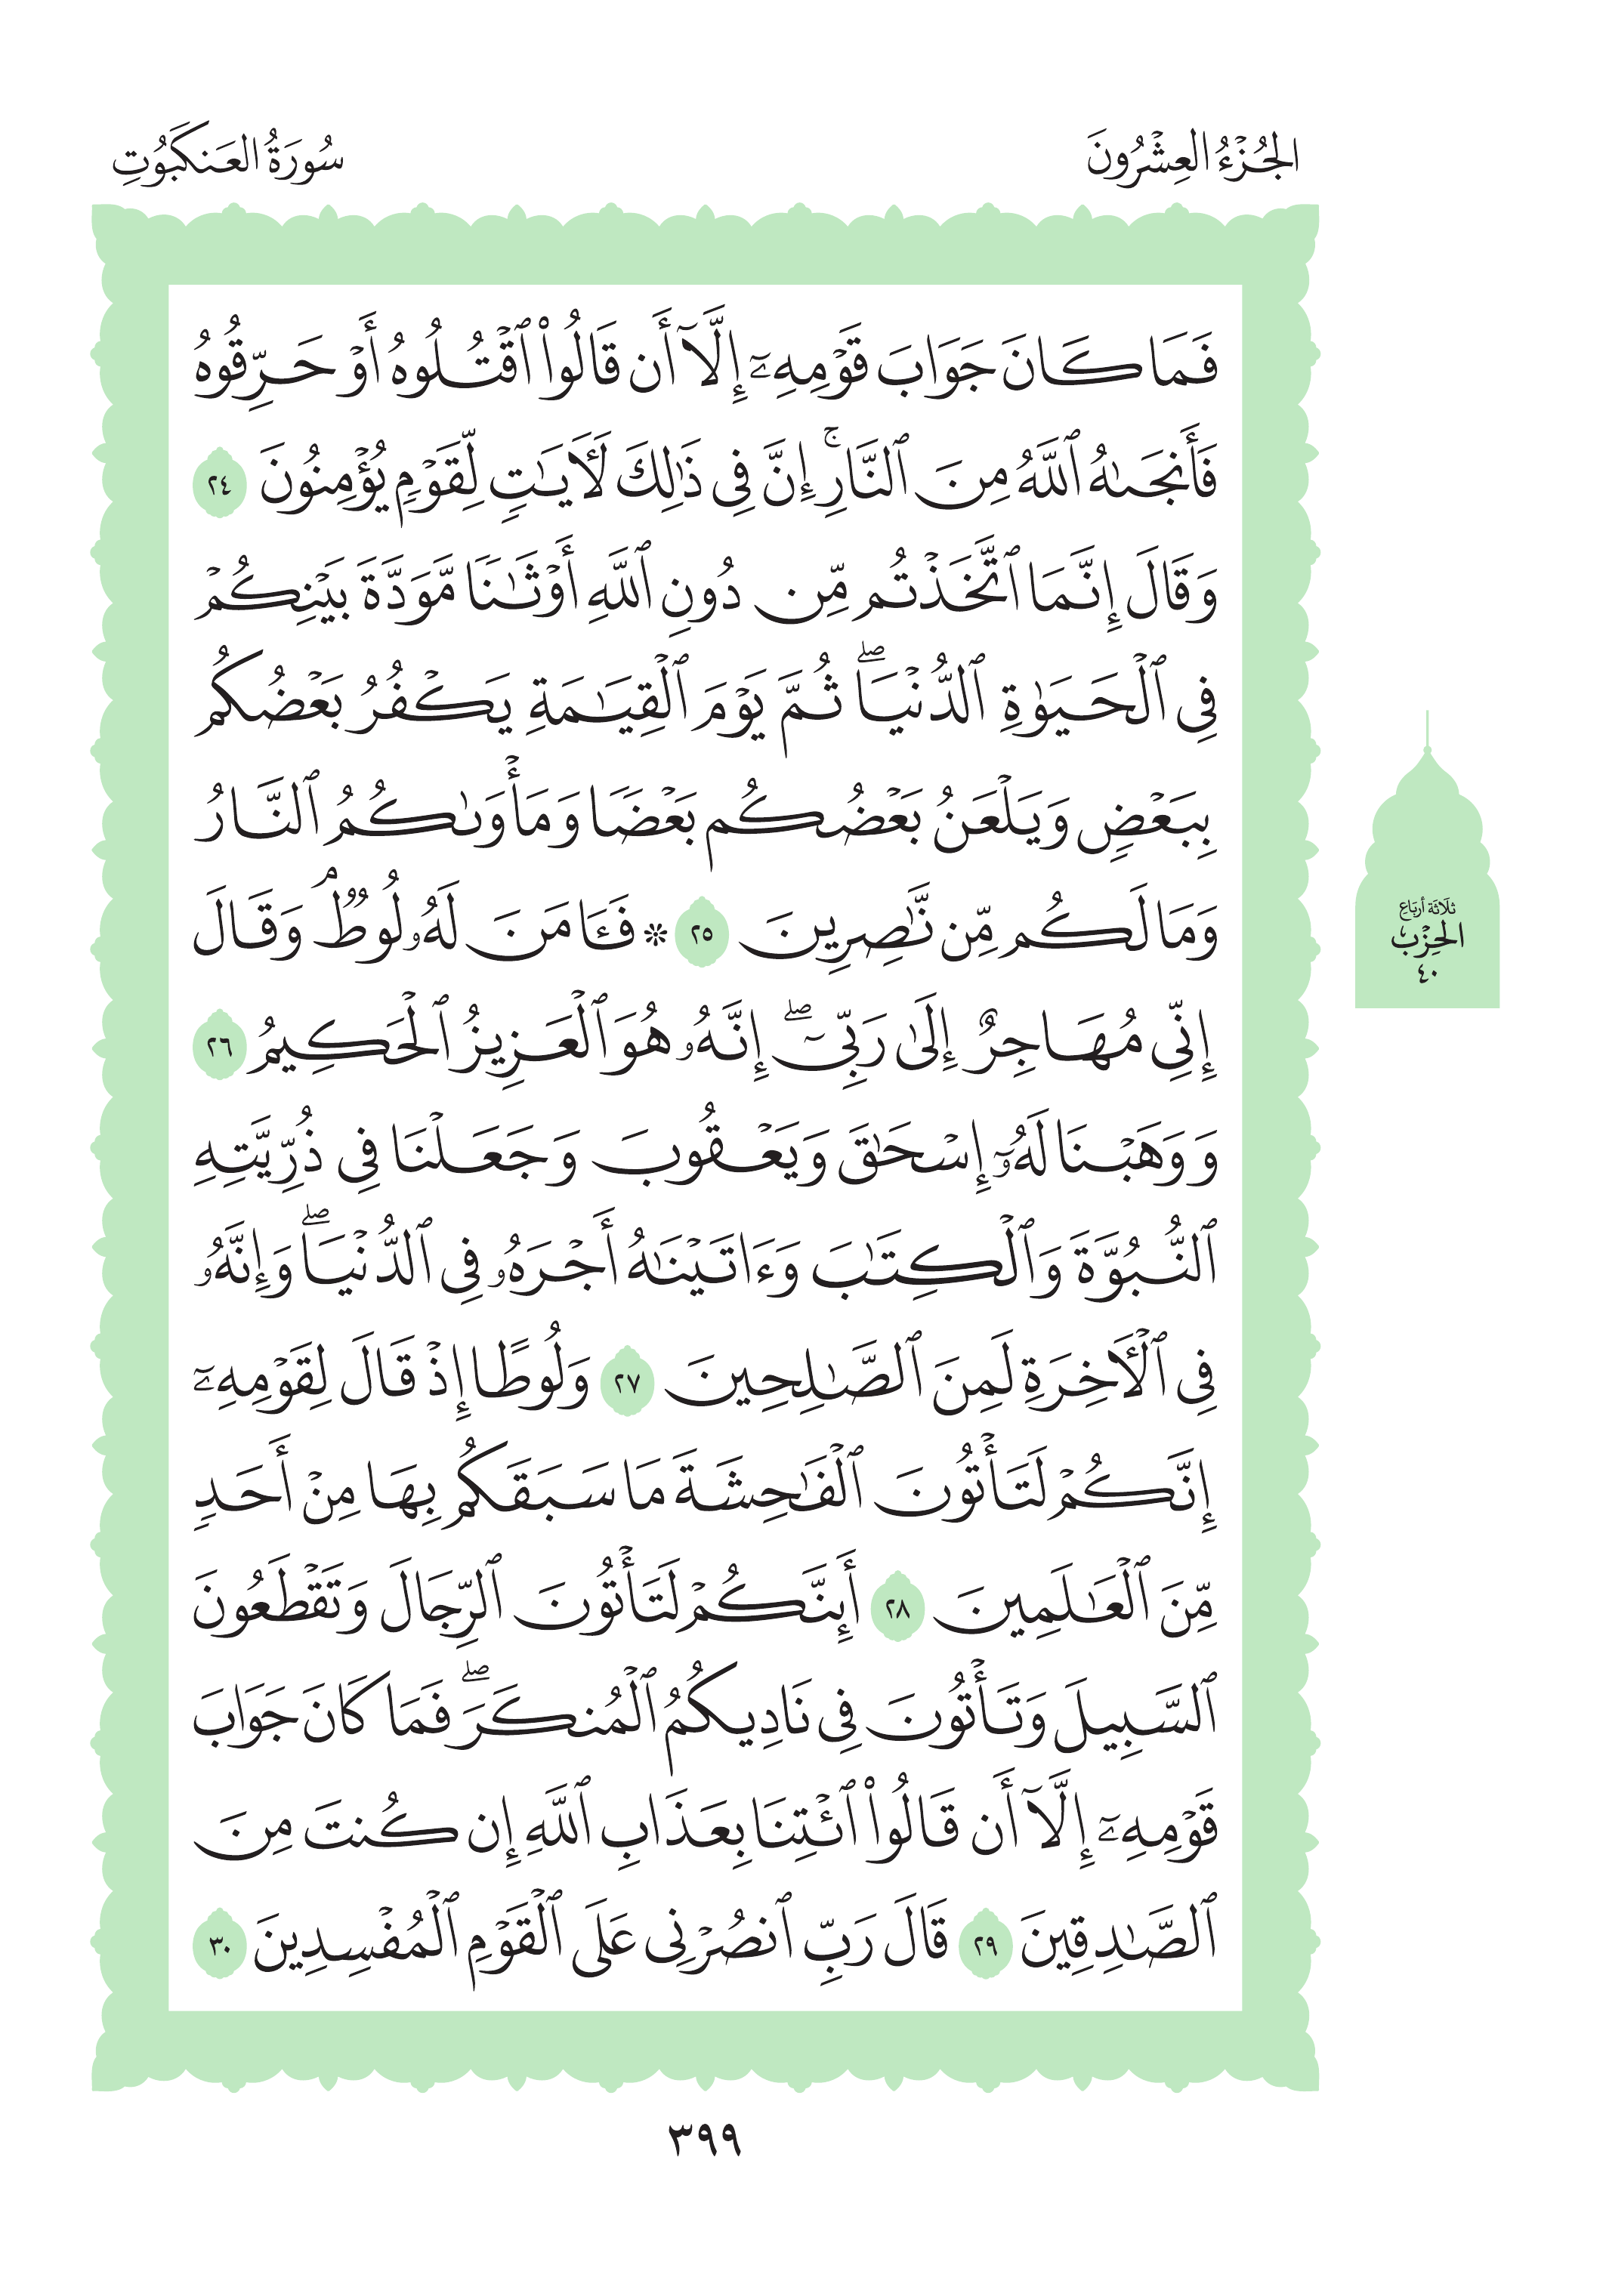 الجُزْءُ العِشْرُونَ
سُورَةُ العَنكَبُوتِ
فَمَا كَانَ جَوَابَ قَوْمِهِۦٓ إِلَّآ أَن قَالُوا۟ ٱقْتُلُوهُ أَوْ حَرِّقُوهُ
فَأَنجَىٰهُ ٱللَّهُ مِنَ ٱلنَّارِ ۚ إِنَّ فِى ذَٰلِكَ لَـَٔايَـٰتٍ لِّقَوْمٍ يُؤْمِنُونَ ٢٤
وَقَالَ إِنَّمَا ٱتَّخَذْتُم مِّن دُونِ ٱللَّهِ أَوْثَـٰنًا مَّوَدَّةَ بَيْنِكُمْ
فِى ٱلْحَيَوٰةِ ٱلدُّنْيَا ۖ ثُمَّ يَوْمَ ٱلْقِيَـٰمَةِ يَكْفُرُ بَعْضُكُم
بِبَعْضٍ وَيَلْعَنُ بَعْضُكُم بَعْضًا وَمَأْوَىٰكُمُ ٱلنَّارُ
وَمَا لَكُم مِّن نَّـٰصِرِينَ ٢٥ * فَـَٔامَنَ لَهُۥ لُوطٌ ۘ وَقَالَ
إِنِّى مُهَاجِرٌ إِلَىٰ رَبِّىٓ ۖ إِنَّهُۥ هُوَ ٱلْعَزِيزُ ٱلْحَكِيمُ ٢٦
وَوَهَبْنَا لَهُۥٓ إِسْحَـٰقَ وَيَعْقُوبَ وَجَعَلْنَا فِى ذُرِّيَّتِهِ
ٱلنُّبُوَّةَ وَٱلْكِتَـٰبَ وَءَاتَيْنَـٰهُ أَجْرَهُۥ فِى ٱلدُّنْيَا ۖ وَإِنَّهُۥ
فِى ٱلْـَٔاخِرَةِ لَمِنَ ٱلصَّـٰلِحِينَ ٢٧ وَلُوطًا إِذْ قَالَ لِقَوْمِهِۦٓ
إِنَّكُمْ لَتَأْتُونَ ٱلْفَـٰحِشَةَ مَا سَبَقَكُم بِهَا مِنْ أَحَدٍ
مِّنَ ٱلْعَـٰلَمِينَ ٢٨ أَئِنَّكُمْ لَتَأْتُونَ ٱلرِّجَالَ وَتَقْطَعُونَ
ٱلسَّبِيلَ وَتَأْتُونَ فِى نَادِيكُمُ ٱلْمُنكَرَ ۖ فَمَا كَانَ جَوَابَ
قَوْمِهِۦٓ إِلَّآ أَن قَالُوا۟ ٱئْتِنَا بِعَذَابِ ٱللَّهِ إِن كُنتَ مِنَ
ٱلصَّـٰدِقِينَ ٢٩ قَالَ رَبِّ ٱنصُرْنِى عَلَى ٱلْقَوْمِ ٱلْمُفْسِدِينَ ٣٠
ثلَاثَة أربَاع
الحِزْب
٤٠
٣٩٩